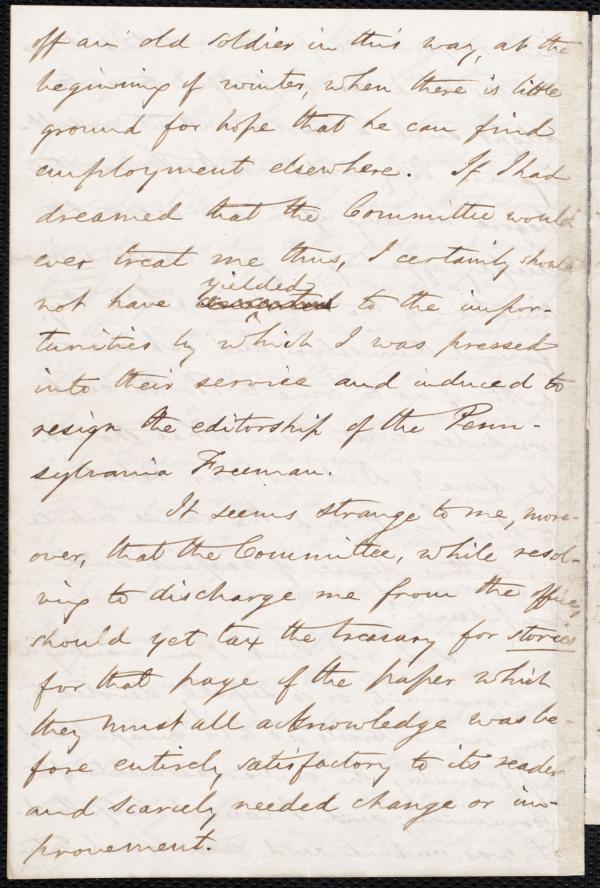 off an old soldier in this way, at the
beginning of winter, when there is little
ground for hope that he can find
employment elsewhere. If I had
dreamed that the Committee would
ever treat me thus, I certainly should
yielded
not have to the impor-
tunities by which I was pressed
into their service and induced to
resign the editorship of the Penn-
sylvania Freeman.
It seems strange to me, more-
over, that the Committee, while resol-
ving to discharge me from the office,
should yet tax the treasury for stories
for that page of the paper which
they must all acknowledge was be-
fore entirely satisfactory to its readers
and scarcely needed change or im-
provement.